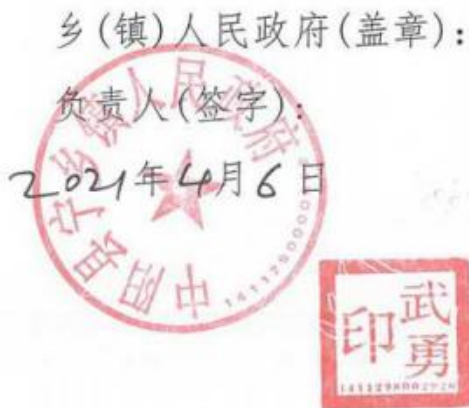 乡(镇)人民政府(盖章):
负责人(签字):
2021年4月6日
中阳县宁乡镇人民政府
武勇
印